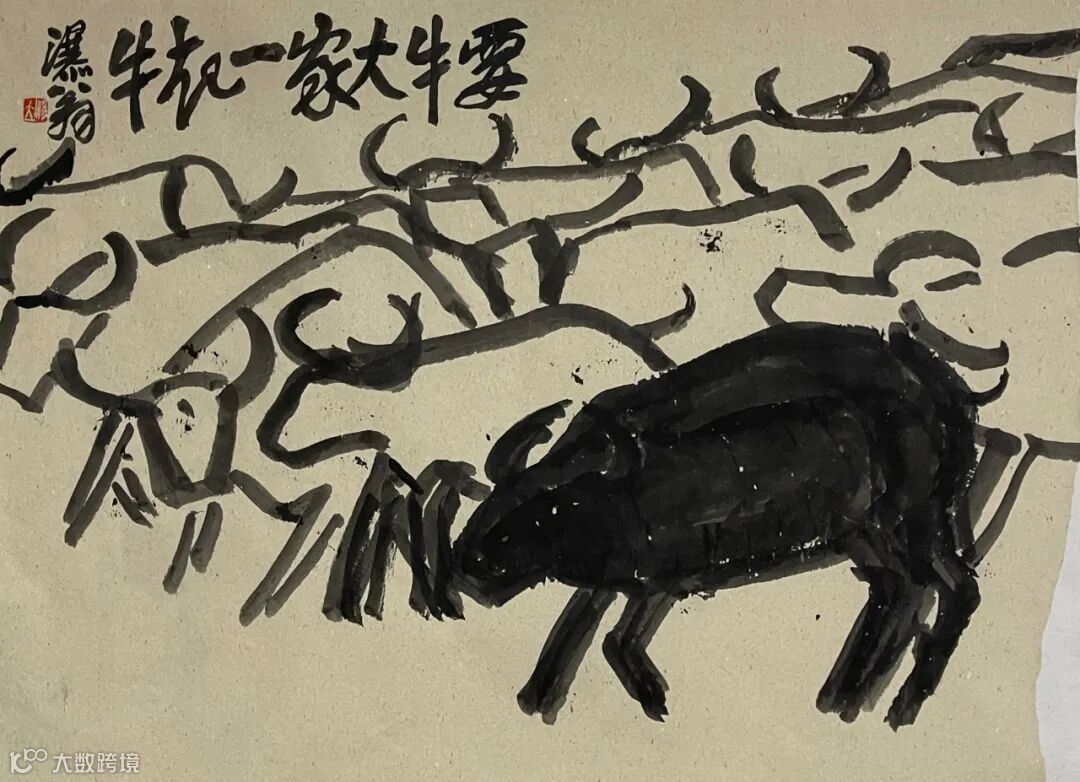 要牛大家一起牛
瀑翁
大数跨境